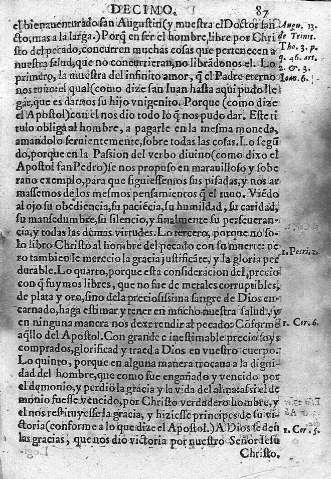 DECIMO. 87
el bienauenturado san Augustin (y muestra el Doctor san
cto, mas a la larga.) Porq̃ en ser el hombre, libre por Chri
sto del pecado, concurren muchas cosas que pertenecen a
nuestra salud, que no concurrieran, no librãdonos el. Lo
primero, la muestra del infinito amor, q̃ el Padre eterno
nos tuuo: el qual (como dize san Iuan) hasta aqui pudo lle
gar, que es darnos su hijo vnigenito. Porque (como dize
el Apostol) con el nos dio todo lo q̃ nos pudo dar. Este ti
tulo obliga al hombre, a pagarle en la mesma moneda,
amandolo feruientemente, sobre todas las cosas. Lo segũ
do, porque en la Passion del verbo diuino (como dixo el
Apostol san Pedro) se nos propuso en marauilloso y sobe
rano exemplo, para que siguiessemos sus pisadas, y nos ar
massemos de los mesmos pensamientos q̃ el tuuo. Vaẽdo
al ojo su obediencia, su paciẽcia, su humildad, su caridad,
su mansedumbre, su silencio, y finalmente su perseueran-
cia, y todas las demas virtudes. Lo tercero, porque no so-
lo libro Christo al hombre del pecado con su muerte: pe
ro tambien le merecio la gracia justificãte, y la gloria per
durable. Lo quarto, porque esta consideracion del, precio
con q̃ fuymos libres, que no fue de metales corruptibles,
de plata y oro, sino de la preciosissima sangre de Dios en-
carnado, haga estimar y tener en mucho nuestra salud, y
en ninguna manera nos dexe rendir al pecado: Cõforme
aq̃llo del Apostol. Con grande e inestimable precio soys
comprados, glorificad y traed a Dios en vuestro cuerpo.
Lo quinto, porque en alguna manera tocaua a la digni-
dad del hombre, que como fue engañado y vencido por
el demonio, y perdio la gracia y la vida del alma: assi el de
monio fuesse vencido, por Christo verdadero hombre, y
el nos restituyesse la gracia, y hiziesse principes de su vi-
ctoria (conforme a lo que dize el Apostol.) A Dios se dẽn
las gracias, que nos dio victoria por nuestro Señor Iesu
Christo,
Aug. 13.
de Trinit.
Tho. 3. p.
q. 46. art.
2. & 3.
Ioan. 6.
1. Petri. 2.
1. Cor. 6.
1. Cor. 5.